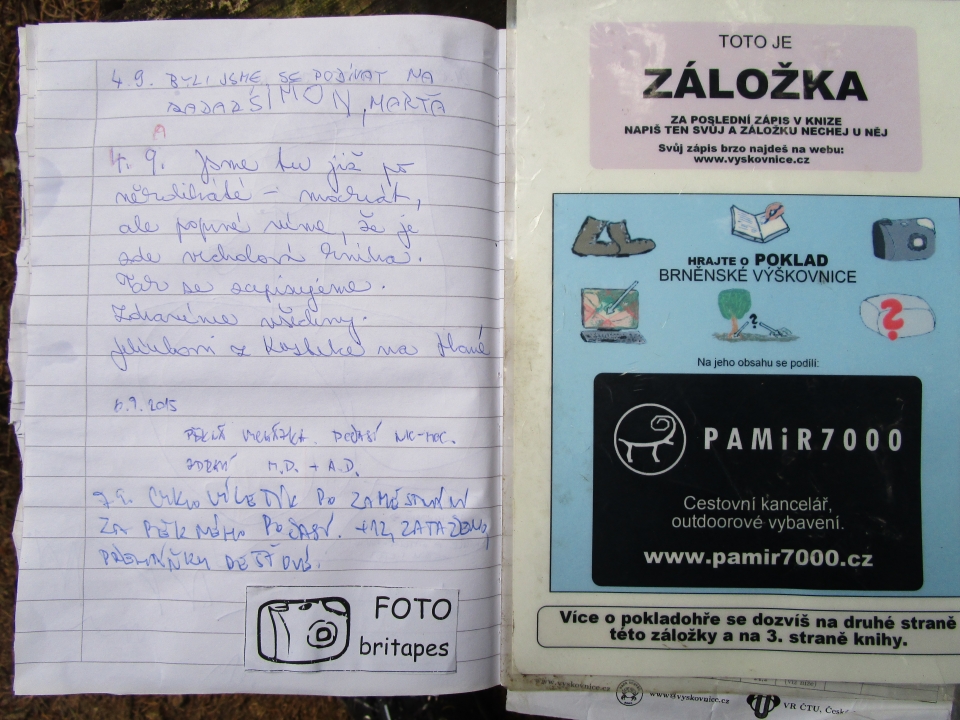 4.9. BYLI JSME SE PODÍVAT NA
ŠIMON, MARŤA
4. 9. Jsme tu již po
několikáté –
ale poprvé víme, že je
zde vrcholová kniha.
Tak se zapisujeme.
Zdravíme všechny.
z na Hané
6.9.2015
PĚKNÁ POČASÍ NIC-MOC.
ZDRAVÍ M.D. + A.D.
7.9. CYKLOVÝLETÍK PO ZAMĚSTNÁNÍ
ZA PĚKNÉHO POČASÍ. +12, ZATAŽENO,
PŘEHÁŇKY DEŠŤOVÉ.
FOTO
britapes
TOTO JE
ZÁLOŽKA
ZA POSLEDNÍ ZÁPIS V KNIZE
NAPIŠ TEN SVŮJ A ZÁLOŽKU NECHEJ U NĚJ
Svůj zápis brzo najdeš na webu:
www.vyskovnice.cz
HRAJTE O POKLAD
BRNĚNSKÉ VÝŠKOVNICE
?
?
Na jeho obsahu se podílí:
PAMiR7000
Cestovní kancelář,
outdoorové vybavení.
www.pamir7000.cz
Více o pokladohře se dozvíš na druhé straně
této záložky a na 3. straně knihy.
www.vyskovnice.cz
www.vyskovnice.cz
VR ČTU, České